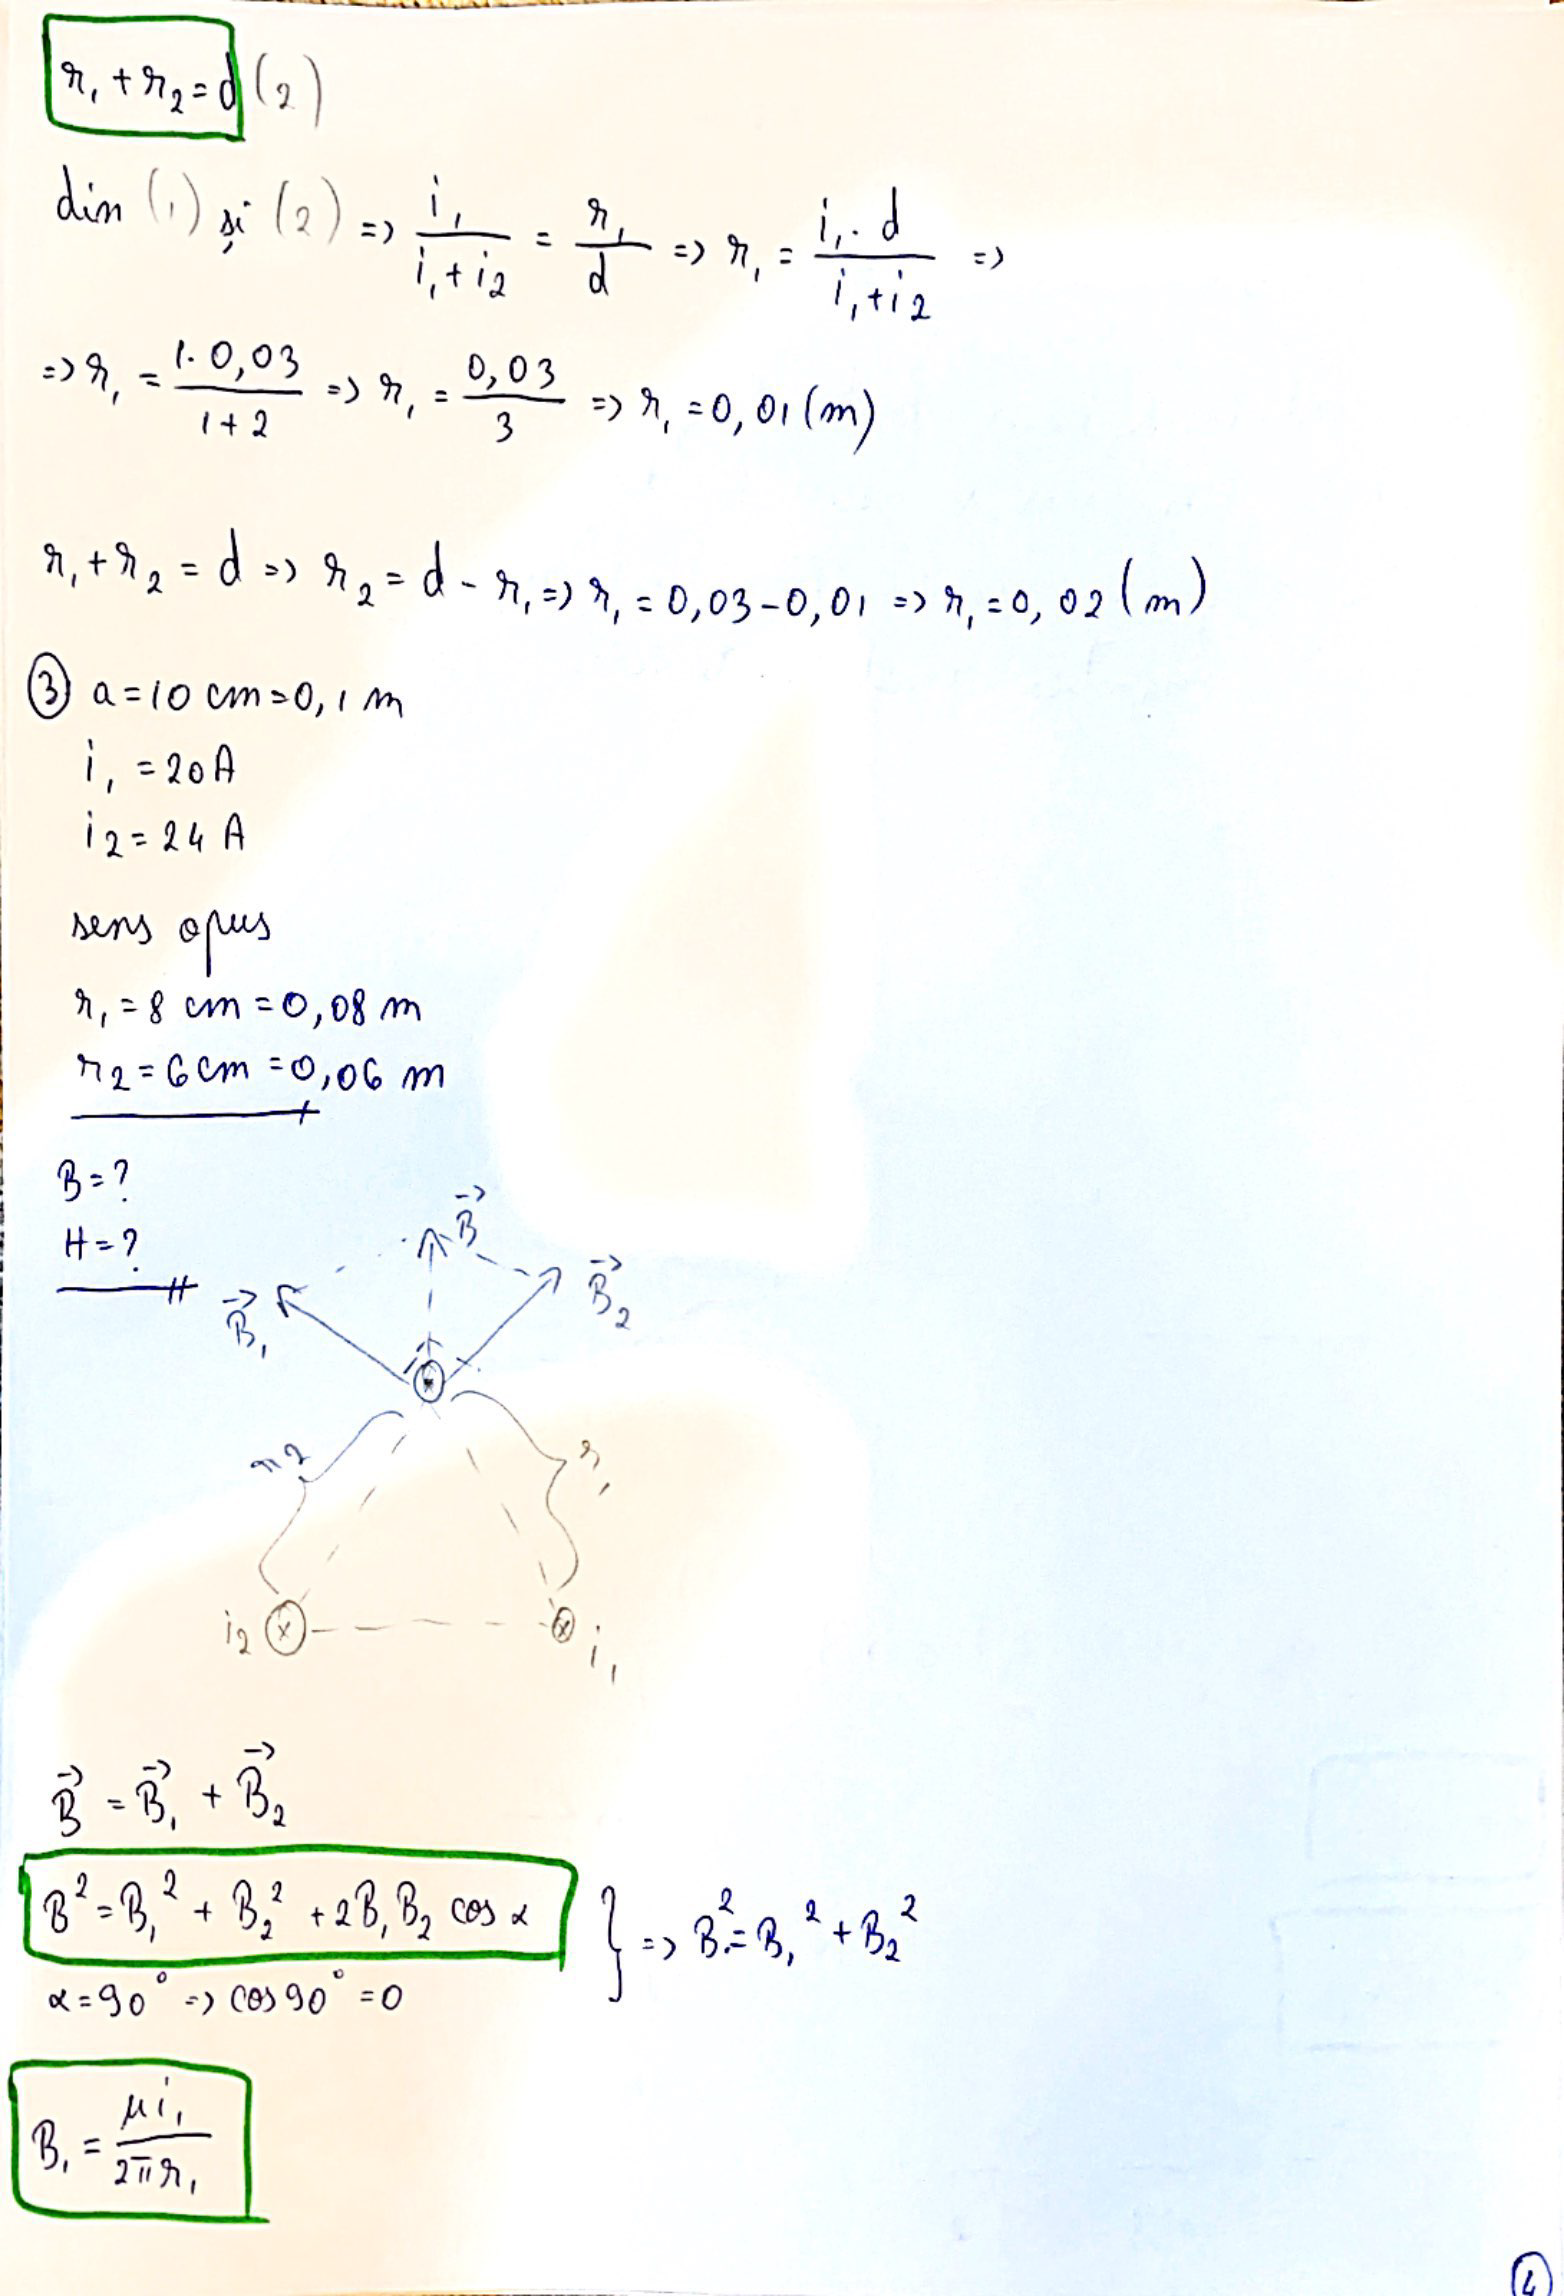 r₁ + r₂ = d (2)
din (1) și (2) => i₁/(i₁+i₂) = r₁/d => r₁ = i₁·d/(i₁+i₂) =>
=> r₁ = 1·0,03/(1+2) => r₁ = 0,03/3 => r₁ = 0,01 (m)
r₁ + r₂ = d => r₂ = d - r₁ => r₁ = 0,03-0,01 => r₁ = 0,02 (m)
③ a = 10 cm = 0,1 m
i₁ = 20A
i₂ = 24 A
sens opus
r₁ = 8 cm = 0,08 m
r₂ = 6 cm = 0,06 m
B = ?
H = ?
B⃗
B⃗₁
B⃗₂
r₂
r₁
i₂
i₁
B⃗ = B⃗₁ + B⃗₂
B² = B₁² + B₂² + 2B₁B₂ cos α } => B² = B₁² + B₂²
α = 90° => cos 90° = 0
B₁ = μi₁/2πr₁